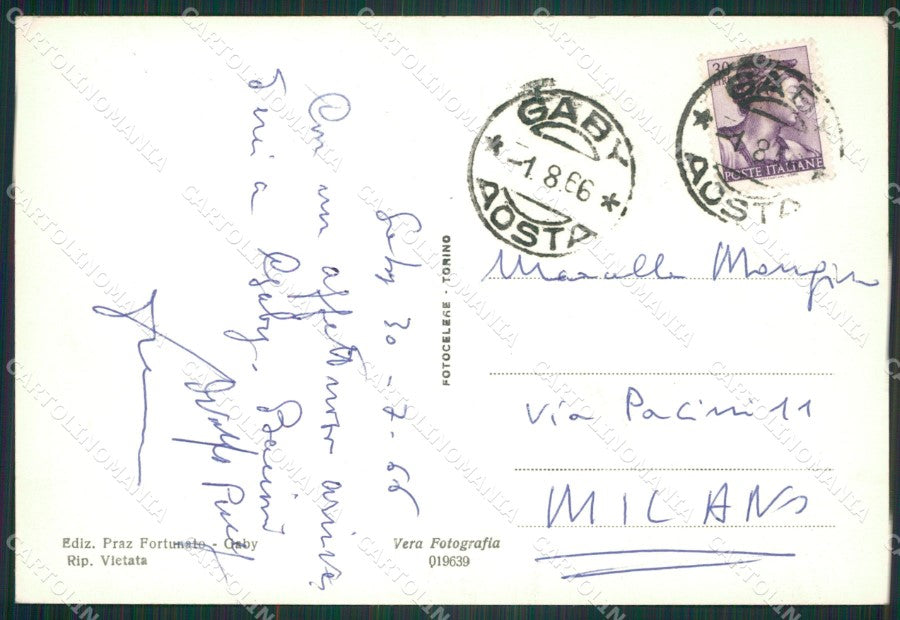 Gaby 30-7-66
Con un affettuoso arrive
derci a Gaby. Bacioni
GABY
-1.8.66
AOSTA
30
POSTE ITALIANE
GABY
AOSTA
FOTOCELERE - TORINO
Via Pacini 11
MILANO
Ediz. Praz Fortunato - Gaby
Rip. Vietata
Vera Fotografia
019639
CARTOLINOMANIA